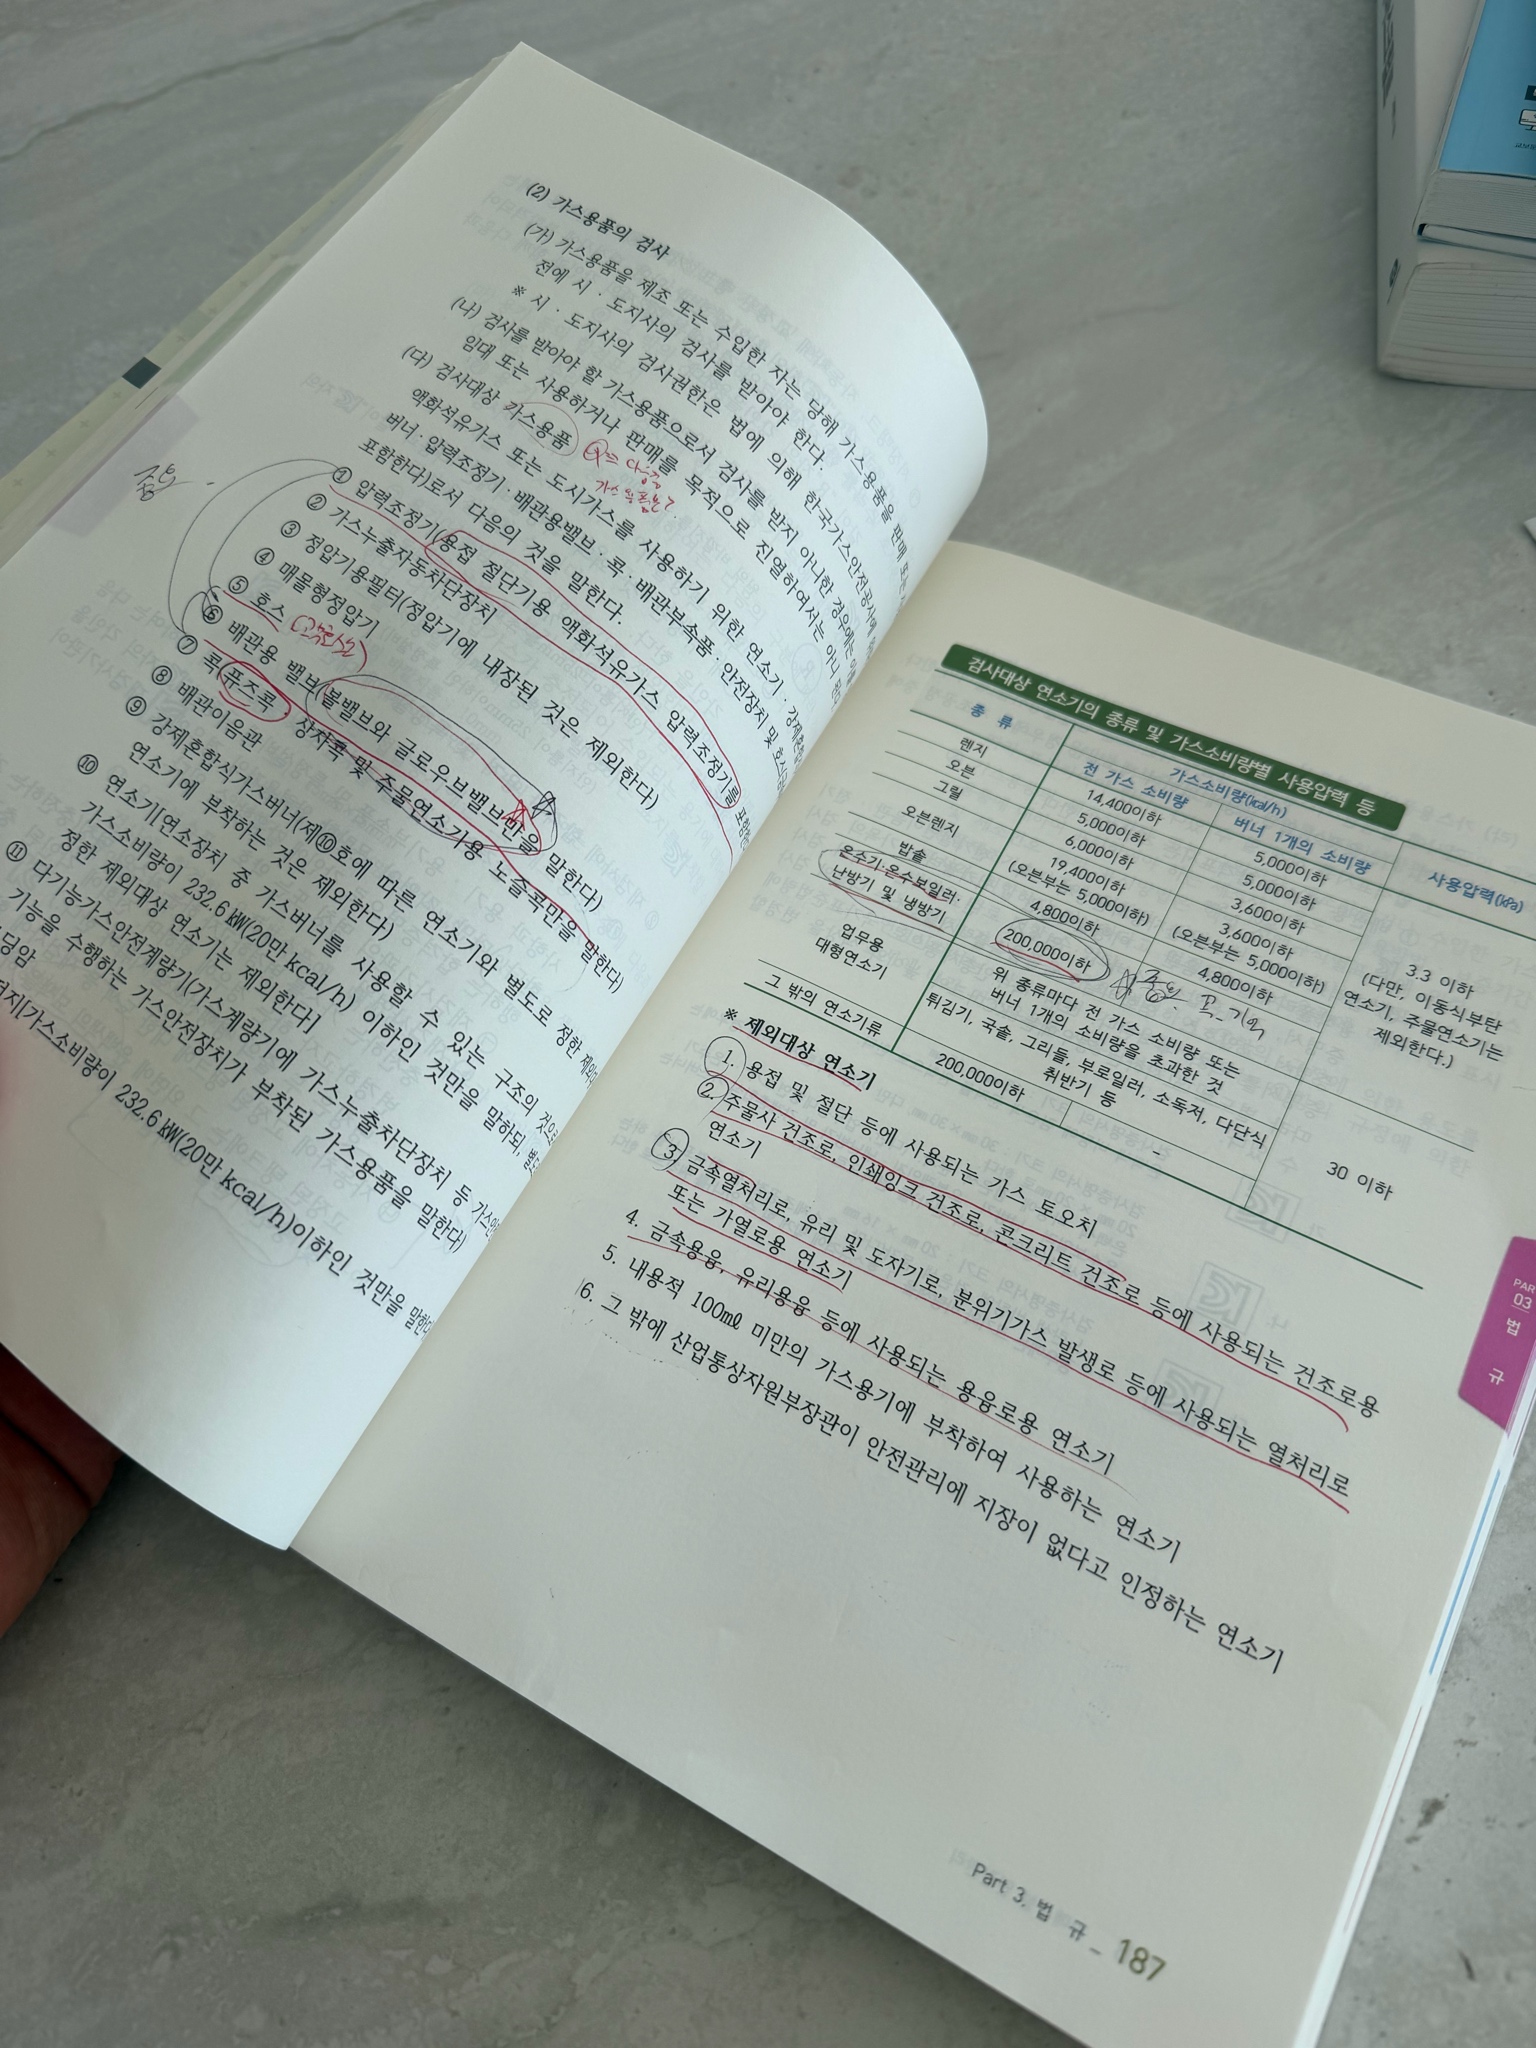 (2) 가스용품의 검사
(가) 가스용품을 제조 또는 수입한 자는 당해 가스용품을 판매
전에 시·도지사의 검사를 받아야 한다.
※ 시·도지사의 검사권한은 법에 의해 한국가스안전공사에
(나) 검사를 받아야 할 가스용품으로서 검사를 받지 아니한 경우에는
임대 또는 사용하거나 판매를 목적으로 진열하여서는 아니
(다) 검사대상 가스용품
액화석유가스 또는 도시가스를 사용하기 위한 연소기·강제혼합
버너·압력조정기·배관용밸브·콕·배관부속품·안전장치 및 호스
포함한다)로서 다음의 것을 말한다.
① 압력조정기(용접 절단기용 액화석유가스 압력조정기를 포함한
② 가스누출자동차단장치
③ 정압기용필터(정압기에 내장된 것은 제외한다)
④ 매몰형정압기
⑤ 호스
⑥ 배관용 밸브(볼밸브와 글로우브밸브만을 말한다)
⑦ 콕(퓨즈콕, 상자콕 및 주물연소기용 노즐콕만을 말한다)
⑧ 배관이음관
⑨ 강제혼합식가스버너(제⑩호에 따른 연소기와 별도로 정한
연소기에 부착하는 것은 제외한다)
⑩ 연소기[연소장치 중 가스버너를 사용할 수 있는 구조의 것으로
가스소비량이 232.6㎾(20만㎉/h) 이하인 것만을 말하되,
정한 제외대상 연소기는 제외한다]
⑪ 다기능가스안전계량기(가스계량기에 가스누출차단장치 등
기능을 수행하는 가스안전장치가 부착된 가스용품을 말한다)
딩암
전지[가스소비량이 232.6㎾(20만㎉/h)이하인 것만을
검사대상 연소기의 종류 및 가스소비량별 사용압력 등
종 류
가스소비량(㎉/h)
사용압력(㎪)
전 가스 소비량
버너 1개의 소비량
렌지
14,400이하
5,000이하
오븐
5,000이하
5,000이하
그릴
6,000이하
3,600이하
오븐렌지
19,400이하
(오븐부는 5,000이하)
3,600이하
(오븐부는 5,000이하)
밥솥
4,800이하
4,800이하
온수기·온수보일러·
난방기 및 냉방기
200,000이하
3.3 이하
(다만, 이동식부탄
연소기, 주물연소기는
제외한다.)
업무용
대형연소기
위 종류마다 전 가스 소비량 또는
버너 1개의 소비량을 초과한 것
튀김기, 국솥, 그리들, 부로일러, 소독저, 다단식
취반기 등
30 이하
그 밖의 연소기류
200,000이하
-
※ 제외대상 연소기
1. 용접 및 절단 등에 사용되는 가스 토오치
2. 주물사 건조로, 인쇄잉크 건조로, 콘크리트 건조로 등에 사용되는 건조로용
연소기
3. 금속열처리로, 유리 및 도자기로, 분위기가스 발생로 등에 사용되는 열처리로
또는 가열로용 연소기
4. 금속용융, 유리용융 등에 사용되는 용융로용 연소기
5. 내용적 100㎖ 미만의 가스용기에 부착하여 사용하는 연소기
6. 그 밖에 산업통상자원부장관이 안전관리에 지장이 없다고 인정하는 연소기
PART
03
법
규
Part 3. 법 규_ 187